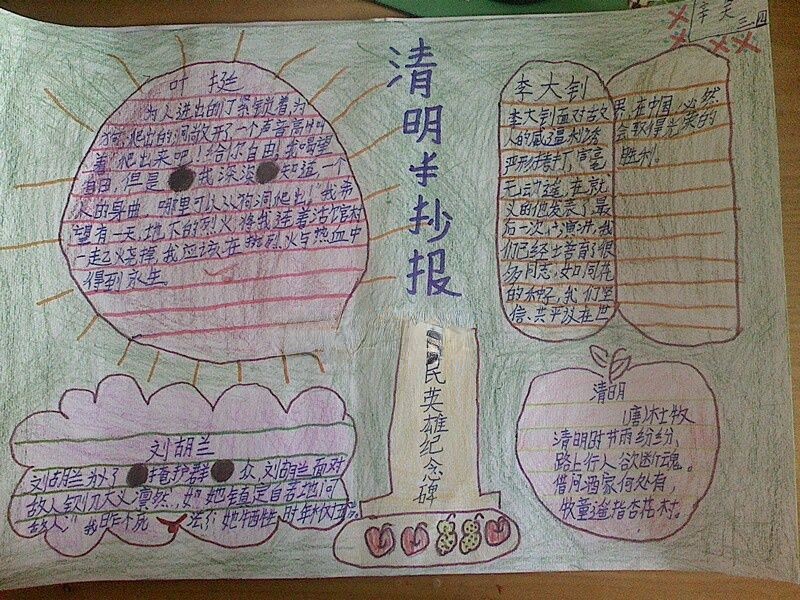 清明手抄报
叶挺
为人进出的门紧锁着,为
狗爬出的洞敞开了一个声音高叫
着,爬出来吧!给你自由,我渴望
自由,但是 我深深 知道,一个
人的身由,哪里可以从狗洞爬出!我希
望有一天,地下的烈火,将我连着活棺材
一起烧掉,我应该在 烈火与热血中
得到永生
李大钊
李大钊面对古文
人的威 温利诱
严形拷打,
无 在就
义的他发表了最
后一次 演讲,我
们已经士苦育了很
多同志,如同花
的种子,我们坚
信、共平议在巴
界,在中国,必然
会取得光荣的
胜利。
刘胡兰
刘胡兰为了 掩护群 众,刘胡兰面对
故人 大义凛然, 她镇定自若地问
故人:"我咋个死 法?她牺牲,时年
民英雄纪念碑
清明
(唐)杜牧
清明时节雨纷纷、
路上行人欲断魂。
借问酒家何处有,
牧童遥指杏花村。
三、四